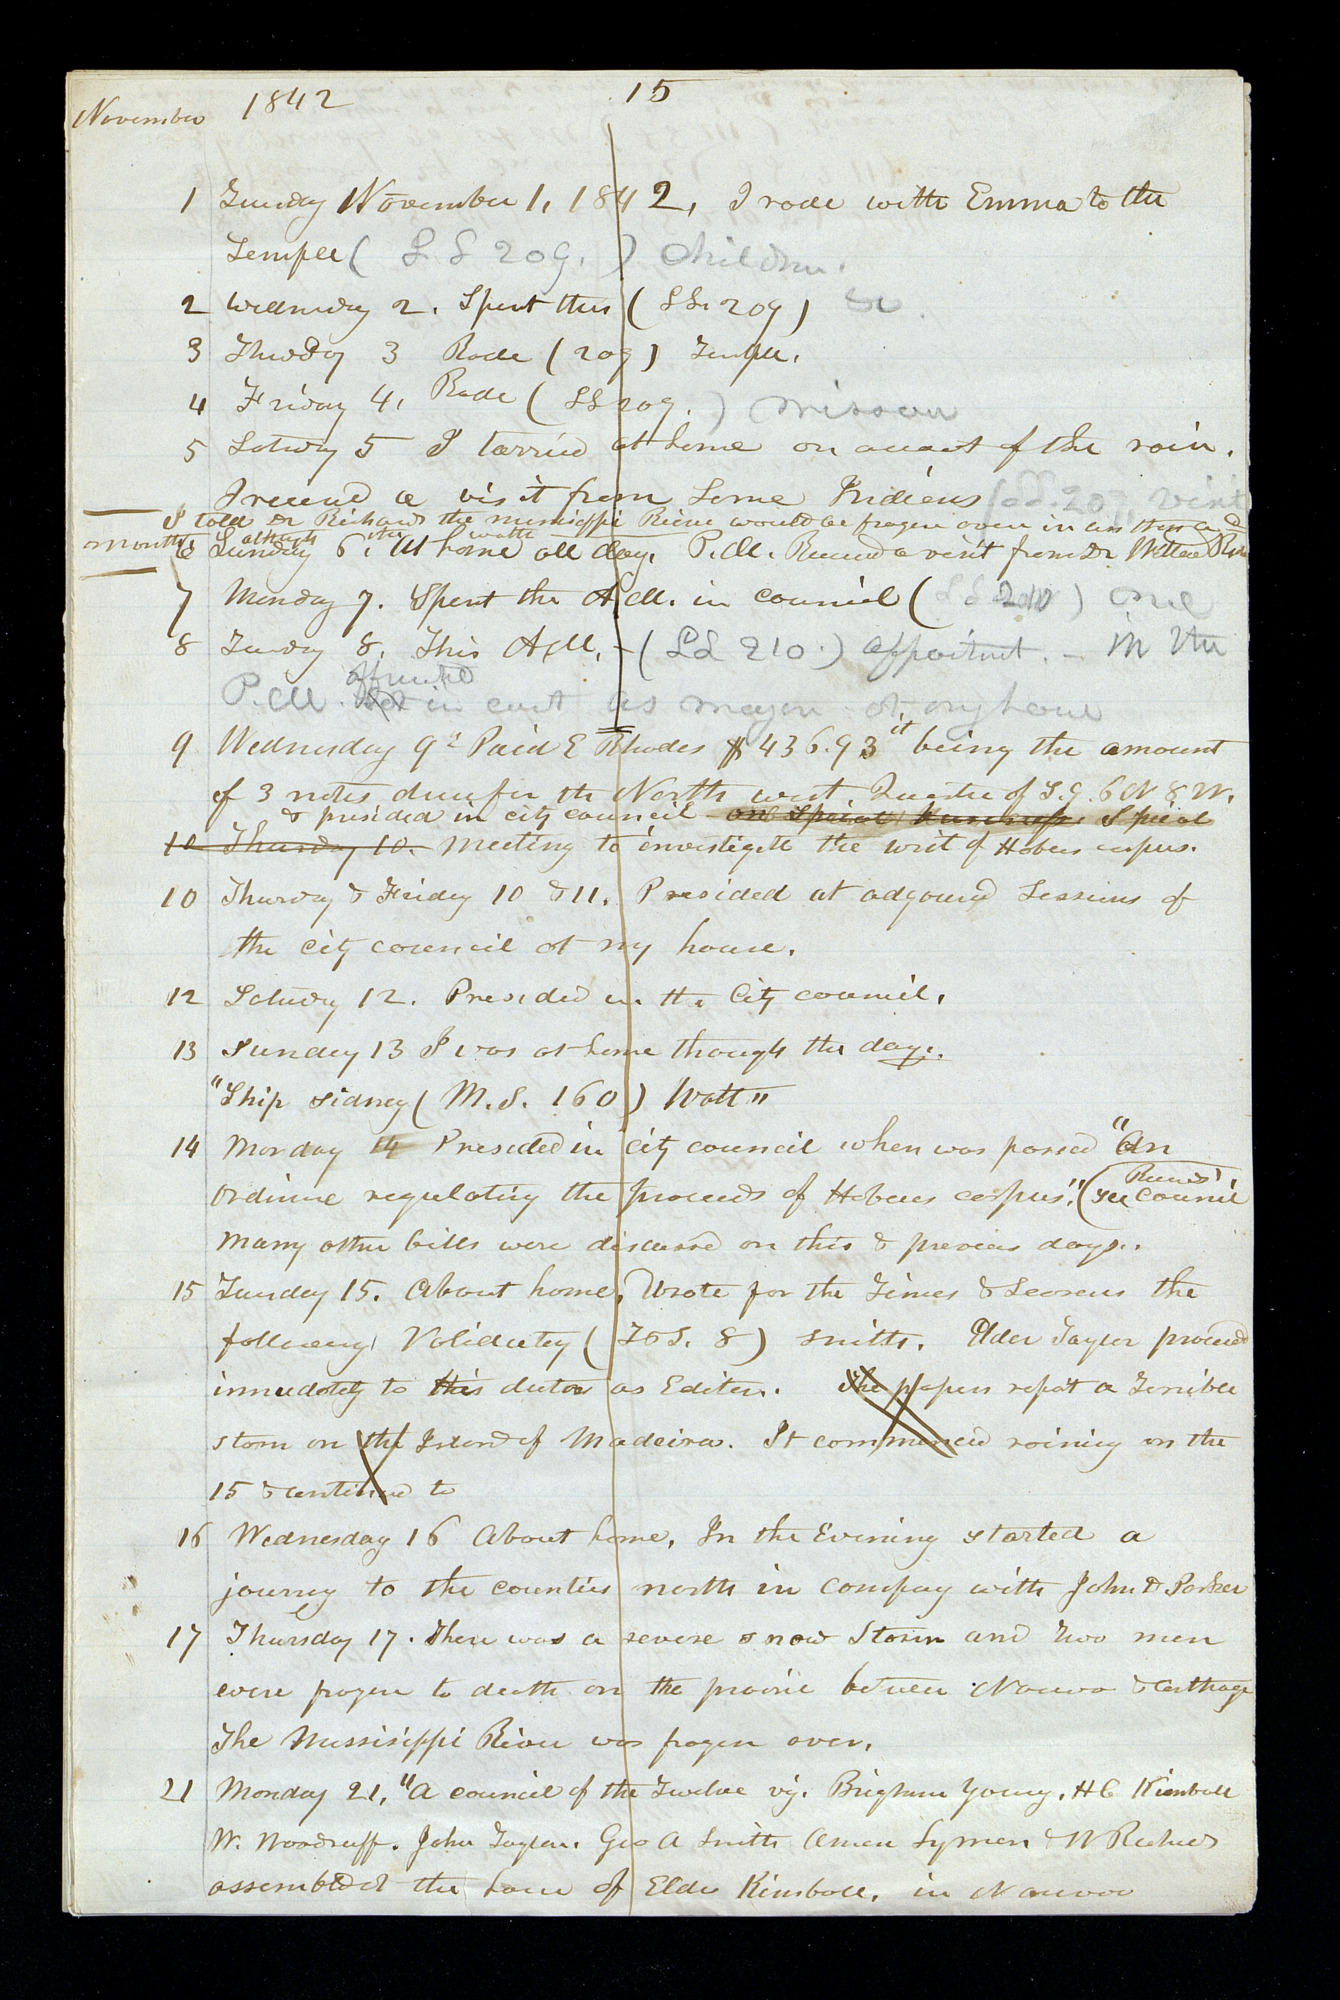 November 1842 15
1 Tuesday November 1, 1842, I rode with Emma to the
Temple ( L S 209. ) children.
2 Wednesday 2. Spent this ( L S. 209 ) &c.
3 Thursday 3 Rode ( 209 ) Temple.
4 Friday 4, Rode ( L S 209. ) missouri
5 Saturday 5 I tarried at home on account of the rain.
I received a visit from some Indians visit
I told Dr Richards the mississippi River would be frozen over in less than a
month although the
6 Sunday 6. At home all day. P.M. Received a visit from Dr Willard Rich
7 Monday 7. Spent the A M. in council ( L S 210 ) one
8 Tuesday 8. This A.M. - ( L S 210. ) appointment. - in the
P.M. officiated in court as mayor at my house
9 Wednesday 9 Paid E Rhodes $436.93 it being the amount
of 3 notes due for the North west Quarter of S.9. 6 N 8 W.
& presided in city council on Special Business Special
10 Thursday 10. meeting to investigate the writ of Habeas corpus.
10 Thursday & Friday 10 & 11. Presided at adjourned sessions of
the city council at my house.
12 Saturday 12. Presided in the City council.
13 Sunday 13 I was at home through the day.
"Ship Sidney ( M.S. 160 ) Watt"
14 Monday 14 Presided in city council when was passed "An
Ordinance regulating the proceeds of Habeas corpus". (see council
Records)
many other bills were discussed on this & previous days.
15 Tuesday 15. About home, Wrote for the Times & Seasons the
following Valedictory ( T & S. 8 ) Smith. Elder Taylor proceeded
immediately to his duties as Editor. The papers report a Terrible
storm on the Island of Madeira. It commenced raining on the
15 & continued to
16 Wednesday 16 About home, In the Evening started a
journey to the counties north in company with John D Parker
17 Thursday 17. There was a severe snow Storm and two men
were frozen to death on the prairie between Nauvoo & Carthage
The Mississippi River was frozen over.
21 Monday 21, "A council of the Twelve viz. Brigham Young, H C Kimball
W. Woodruff. John Taylor. Geo A Smith Amasa Lyman & W Richards
assembled at the house of Elder Kimball, in Nauvoo